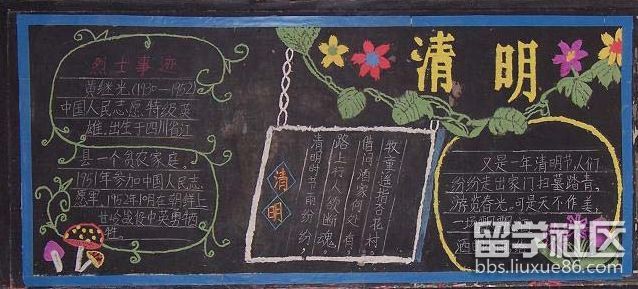 清明
烈士事迹
黄继光(1930—1952)
中国人民志愿特级英
雄,出生于四川省江
县一个贫农家庭,
1951年参加中国人民志
愿军,1952年10月在朝鲜上
甘岭战役中英勇牺
牲
清明
清明时节雨纷纷
路上行人欲断魂。
借问酒家何处有
牧童遥指杏花村。
又是一年清明节,人们
纷纷走出家门扫墓踏青,
游览春光,可是天不作美,
一场
酒
留学社区
bbs.liuxue86.com